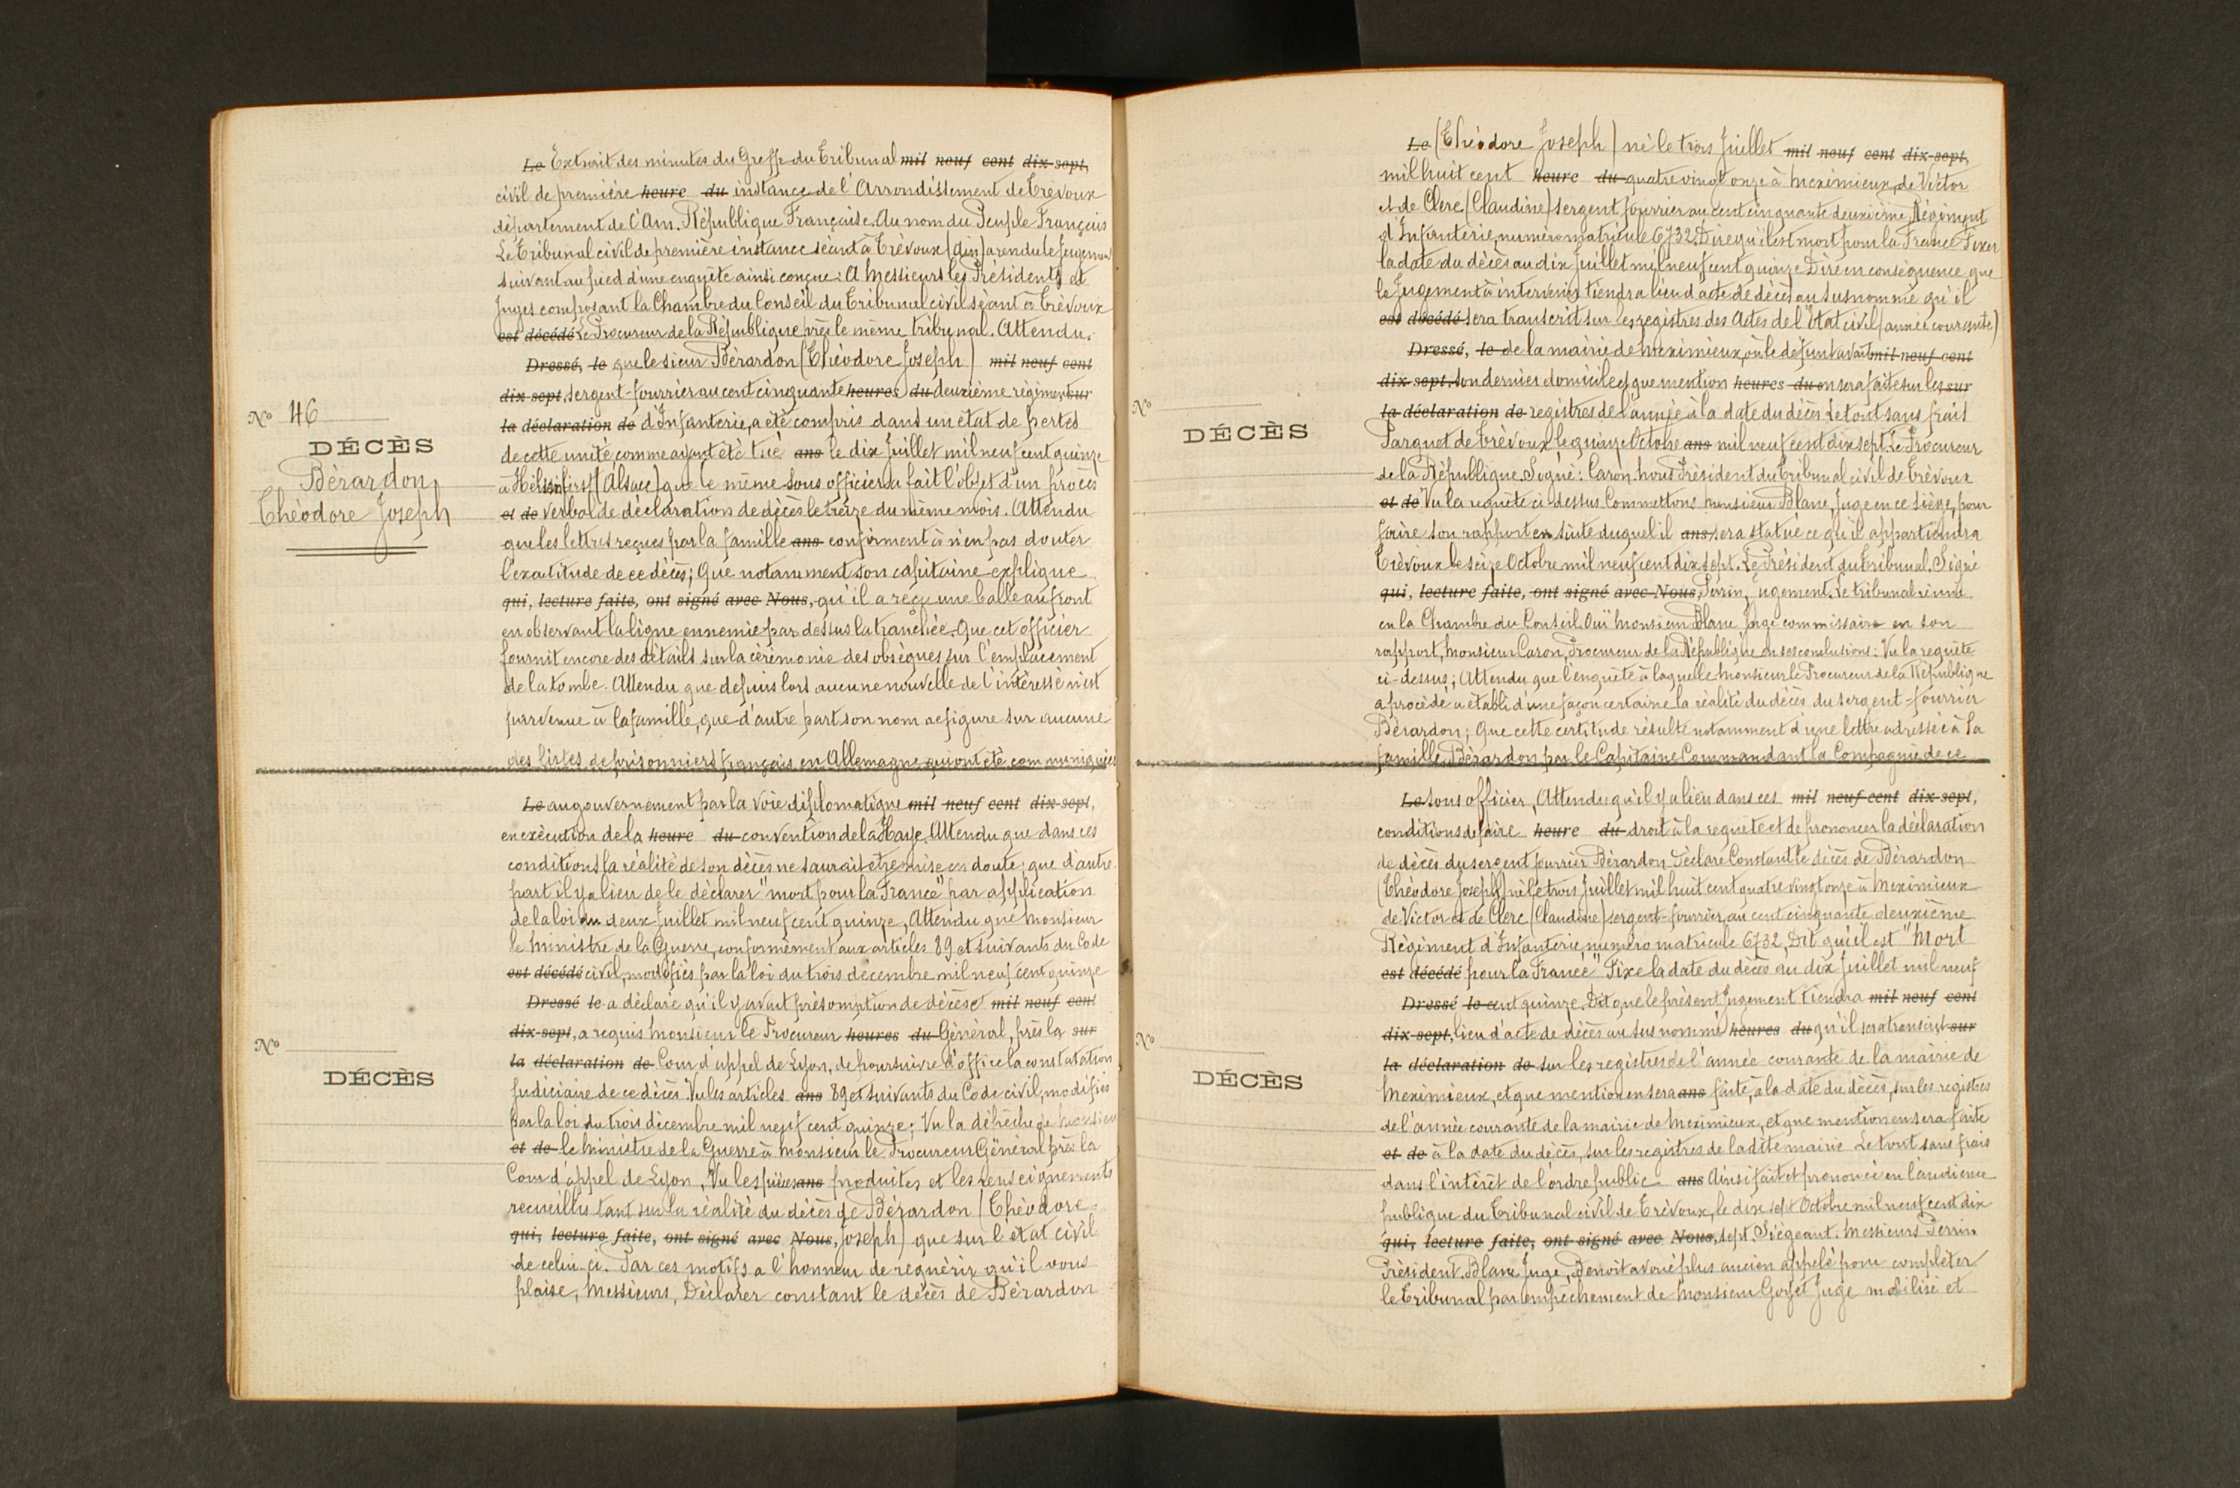 Le Extrait des minutes du Greffe du Tribunal mil neuf cent dix-sept,
civil de première heure du instance de l'Arrondissement de Trévoux
département de l'Ain. République Française. Au nom du Peuple Français
Le Tribunal civil de première instance séant à Trévoux (Ain) a rendu le Jugement
suivant au pied d'une enquête ainsi conçue: A Messieurs les Présidents et
Juges composant la Chambre du Conseil du Tribunal civil séant à Trévoux
est décédé Le Procureur de la République près le même tribunal. Attendu.
Dressé, le que le sieur Bérardon (Théodore Joseph) mil neuf cent
dix-sept, sergent-fourrier au cent cinquante heures du deuxième régiment sur
la déclaration de d'Infanterie, a été compris dans un état de pertes
de cette unité comme ayant été tué ans le dix Juillet mil neuf cent quinze
à (Alsace) que le même sous officier a fait l'objet d'un procès
et de verbal de déclaration de décès le treize du même mois. Attendu
que les lettres reçues par la famille ans confirment à n'en pas douter
l'exactitude de ce décès; Que notamment son capitaine explique
qui, lecture faite, ont signé avec Nous, qu'il a reçu une balle au front
en observant la ligne ennemie par dessus la tranchée. Que cet officier
fournit encore des détails sur la cérémonie des obsèques, sur l'emplacement
de la tombe. Attendu que depuis lors aucune nouvelle de l'intéressé n'est
parvenue à la famille, que d'autre part son nom ne figure sur aucune
des listes de prisonniers français en Allemagne qui ont été communiquées
Nº 46
DÉCÈS
Bérardon
Théodore Joseph
Le au gouvernement par la voie diplomatique mil neuf cent dix-sept,
en exécution de la heure du convention de la Haye. Attendu que dans ces
conditions la réalité de son décès ne saurait être mise en doute; que d'autre
part il y a lieu de le déclarer "mort pour la France" par application
de la loi du deux Juillet mil neuf cent quinze, Attendu que Monsieur
le Ministre de la Guerre, conformément aux articles 89 et suivants du Code
est décédé civil, modifiés par la loi du trois décembre mil neuf cent quinze
Dressé le a déclaré qu'il y avait présomption de décès et mil neuf cent
dix-sept, a requis Monsieur le Procureur heures du Général, près la sur
la déclaration de Cour d'appel de Lyon, de poursuivre d'office la constatation
Judiciaire de ce décès. Vu les articles ans 89 et suivants du Code civil, modifiés
par la loi du trois décembre mil neuf cent quinze; Vu la dépêche de Monsieur
et de le Ministre de la Guerre à Monsieur le Procureur Général près la
Cour d'appel de Lyon, Vu les pièces ans produites et les renseignements
recueillis tant sur la réalité du décès de Bérardon (Théodore
qui, lecture faite, ont signé avec Nous, Joseph) que sur l'état civil
de celui-ci. Par ces motifs a l'honneur de requérir qu'il vous
plaise, Messieurs, Déclarer constant le décès de Bérardon
Nº
DÉCÈS
Le (Théodore Joseph) né le trois Juillet mil neuf cent dix-sept,
mil huit cent heure du quatre vingt onze à Meximieux, de Victor
et de Clerc (Claudine) sergent fourrier au cent cinquante deuxième Régiment
d'Infanterie, numéro matricule 6732. Dire qu'il est mort pour la France. Fixer
la date du décès au dix Juillet mil neuf cent quinze. Dire en conséquence que
le Jugement à intervenir tiendra lieu d'acte de décès au susnommé qu'il
est décédé sera transcrit sur les registres des Actes de l'Etat civil (année courante)
Dressé, le de la mairie de Meximieux, où le défunt avait mil neuf cent
dix-sept, son dernier domicile et que mention heures du en sera faite sur les sur
la déclaration de registres de l'année à la date du décès. Le tout sans frais
Parquet de Trévoux le quinze Octobre ans mil neuf cent dix sept. Le Procureur
de la République. Signé: Caron. Nous Président du Tribunal civil de Trévoux
et de Vu la requête ci-dessus. Commettons Monsieur Blanc, Juge en ce siège, pour
faire son rapport en suite duquel il ans sera statué ce qu'il appartiendra
Trévoux le seize Octobre mil neuf cent dix sept. Le Président du Tribunal. Signé
qui, lecture faite, ont signé avec Nous, Perrin, Jugement. Le tribunal réuni
en la Chambre du Conseil. Ouï Monsieur Blanc Juge commissaire en son
rapport, Monsieur Caron, Procureur de la République en ses conclusions: Vu la requête
ci-dessus; Attendu que l'enquête à laquelle Monsieur le Procureur de la République
a procédé a établi d'une façon certaine la réalité du décès du sergent-fourrier
Bérardon; Que cette certitude résulte notamment d'une lettre adressée à la
famille Bérardon par le Capitaine Commandant la Compagnie de ce
Nº
DÉCÈS
Le sous officier, Attendu qu'il y a lieu dans ces mil neuf cent dix-sept,
conditions de faire heure du droit à la requête et de prononcer la déclaration
de décès du sergent fourrier Bérardon. Déclare Constant le décès de Bérardon
(Théodore Joseph) né le trois Juillet mil huit cent quatre vingt onze à Meximieux
de Victor et de Clerc (Claudine) sergent-fourrier, au cent cinquante deuxième
Régiment d'Infanterie, numéro matricule 6732, Dit qu'il est "Mort
est décédé pour la France" Fixe la date du décès au dix Juillet mil neuf
Dressé le cent quinze. Dit que le présent Jugement tiendra mil neuf cent
dix-sept, lieu d'acte de décès au susnommé heures du qu'il sera transcrit sur
la déclaration de sur les registres de l'année courante de la mairie de
Meximieux, et que mention en sera ans faite, à la date du décès, sur les registres
de l'année courante de la mairie de Meximieux, et que mention en sera faite
et de à la date du décès, sur les registres de la dite mairie. Le tout sans frais
dans l'intérêt de l'ordre public. ans Ainsi fait et prononcé en l'audience
publique du Tribunal civil de Trévoux, le dix sept Octobre mil neuf cent dix
qui, lecture faite, ont signé avec Nous, sept. Siégeant. Messieurs Perrin
Président. Blanc Juge, Benoit avoué plus ancien appelé pour compléter
le Tribunal par empêchement de Monsieur Goyet Juge mobilisé et
Nº
DÉCÈS